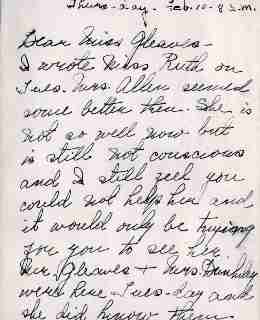 Thurs-day, Feb. 10 - 8 P.M.
Dear Miss Gleaves -
I wrote Miss Ruth on
Tues. Mrs. Allen seemed
some better then. She is
not so well now but
is still not conscious
and I still feel you
could not help her and
it would only be trying
for you to see her
Mr. Gleaves + Mrs.
were here - Tues-day and
she did know them